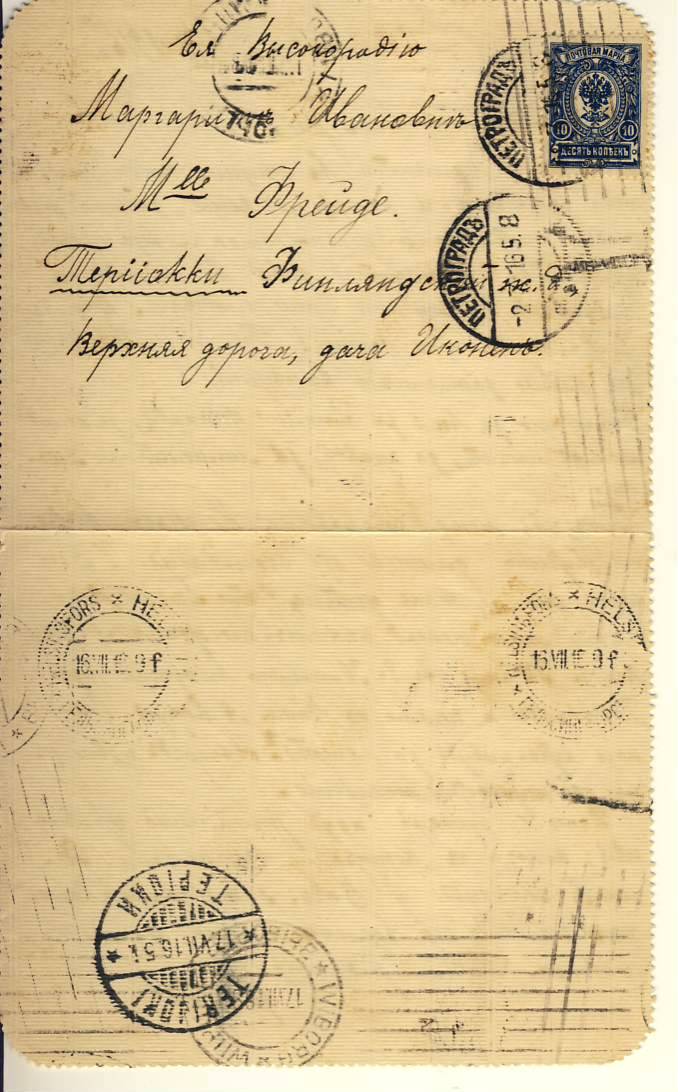 Ея Высокородію
Маргаритѣ Ивановнѣ
Mlle Фрейде.
Теріокки Финляндской ж. д.
Верхняя дорога, дача Иконенъ.
ПОЧТОВАЯ МАРКА
10 10
ДЕСЯТЬ КОПѢЕКЪ
ПЕТРОГРАДЪ
ПЕТРОГРАДЪ
-2.7.16 5. 8
HELSINGFORS * HELS
16.VII.16. 9 f.
* HELS
16.VII.16. 9 f.
ТЕРІОКИ
* 17.VII.16. 5 i. *
TERIJOKI
* WIBORG
17.VII.16